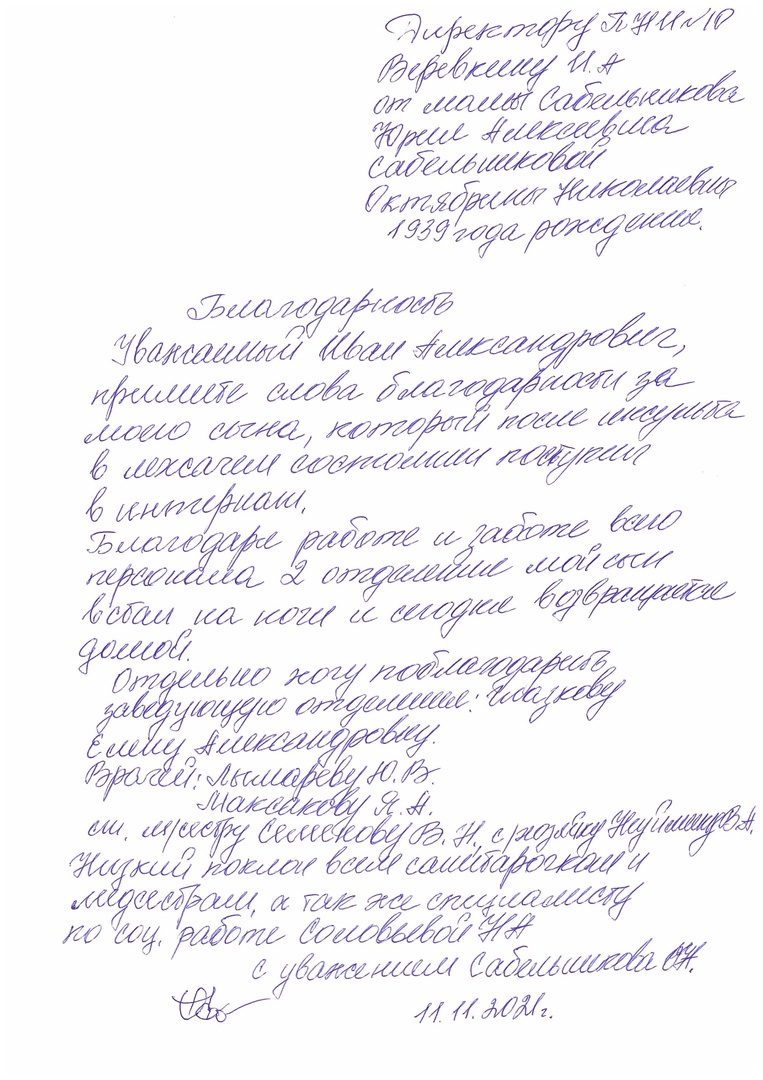 Директору ПНИ №10
Веревкину И.А
от мамы Сабельникова
Юрия Алексеевича
Сабельниковой
Октябрины Николаевны
1939 года рождения.
Благодарность
Уважаемый Иван Александрович,
примите слова благодарности за
моего сына, который после инсульта
в лежачем состоянии поступил
в интернат.
Благодаря работе и заботе всего
персонала 2 отделения мой сын
встал на ноги и сегодня возвращается
домой.
Отдельно хочу поблагодарить
заведующую отделением: Глазкову
Елену Александровну.
Врачей: Лымареву Ю.В.
Максакову Я.А.
ст. м/сестру Семенову В.Н, с/хозяйку Неуймину В.А.
Низкий поклон всем санитарочкам и
медсестрам, а так же специалисту
по соц. работе Соловьевой Н А
с уважением Сабельникова ОН.
11.11.2021г.